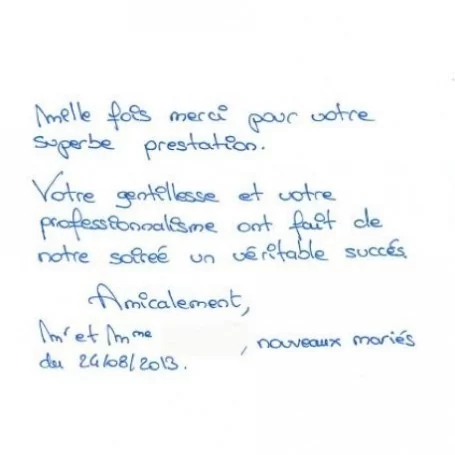 Mille fois merci pour votre
superbe prestation.
Votre gentillesse et votre
professionnalisme ont fait de
notre soireé un véritable succés
Amicalement,
Mr et Mme , nouveaux mariés
du 24/08/2013.